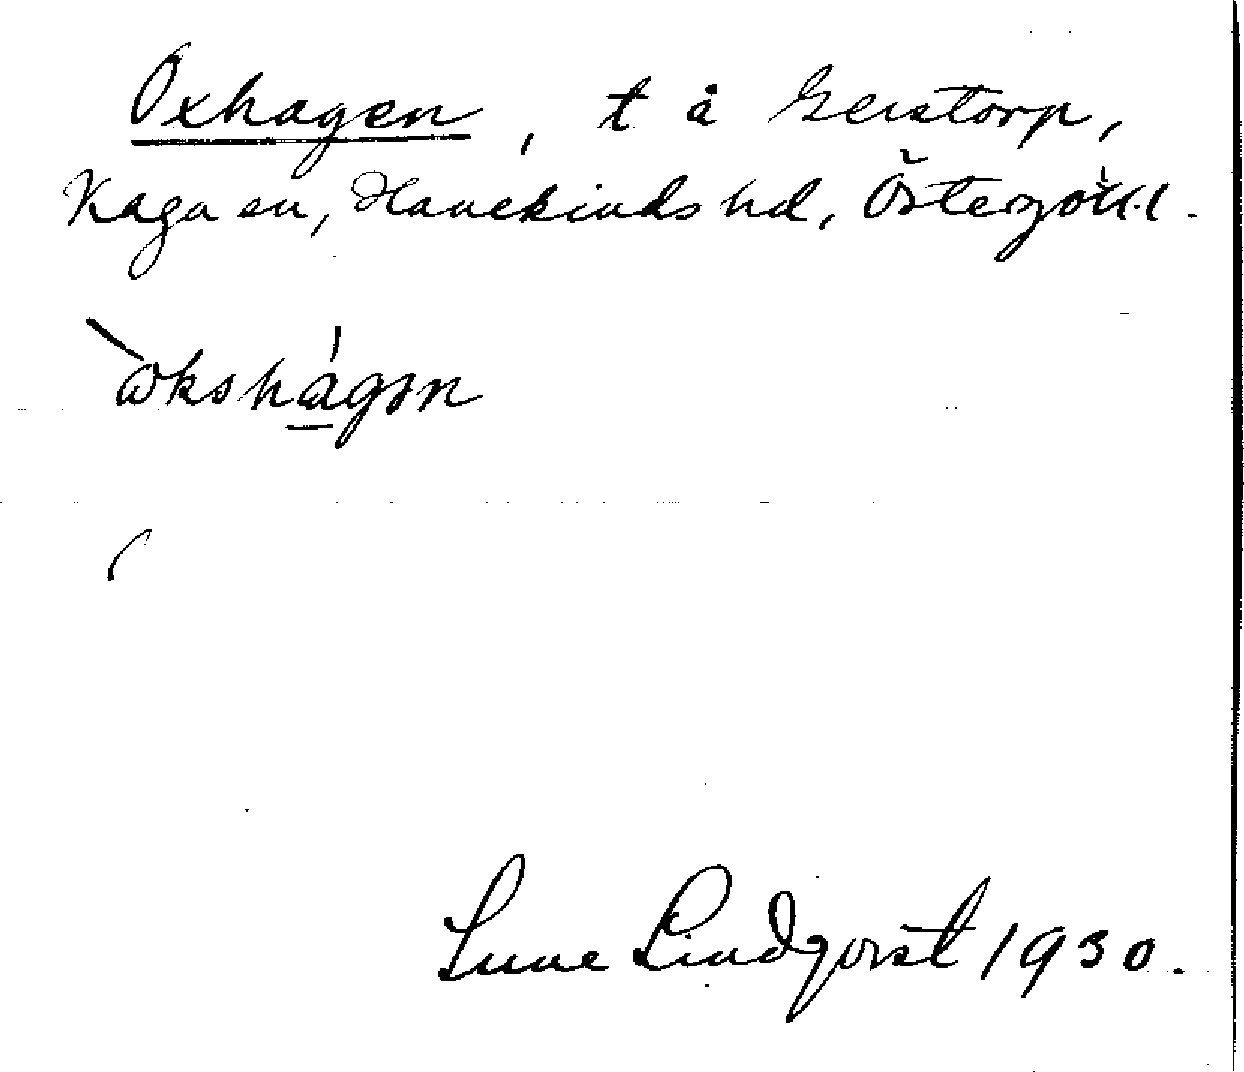 Oxhagen, t å Gerstorp,
Kaga sn, Hanekinds hd, Östergötl.
Sune Lindqvist 1930.